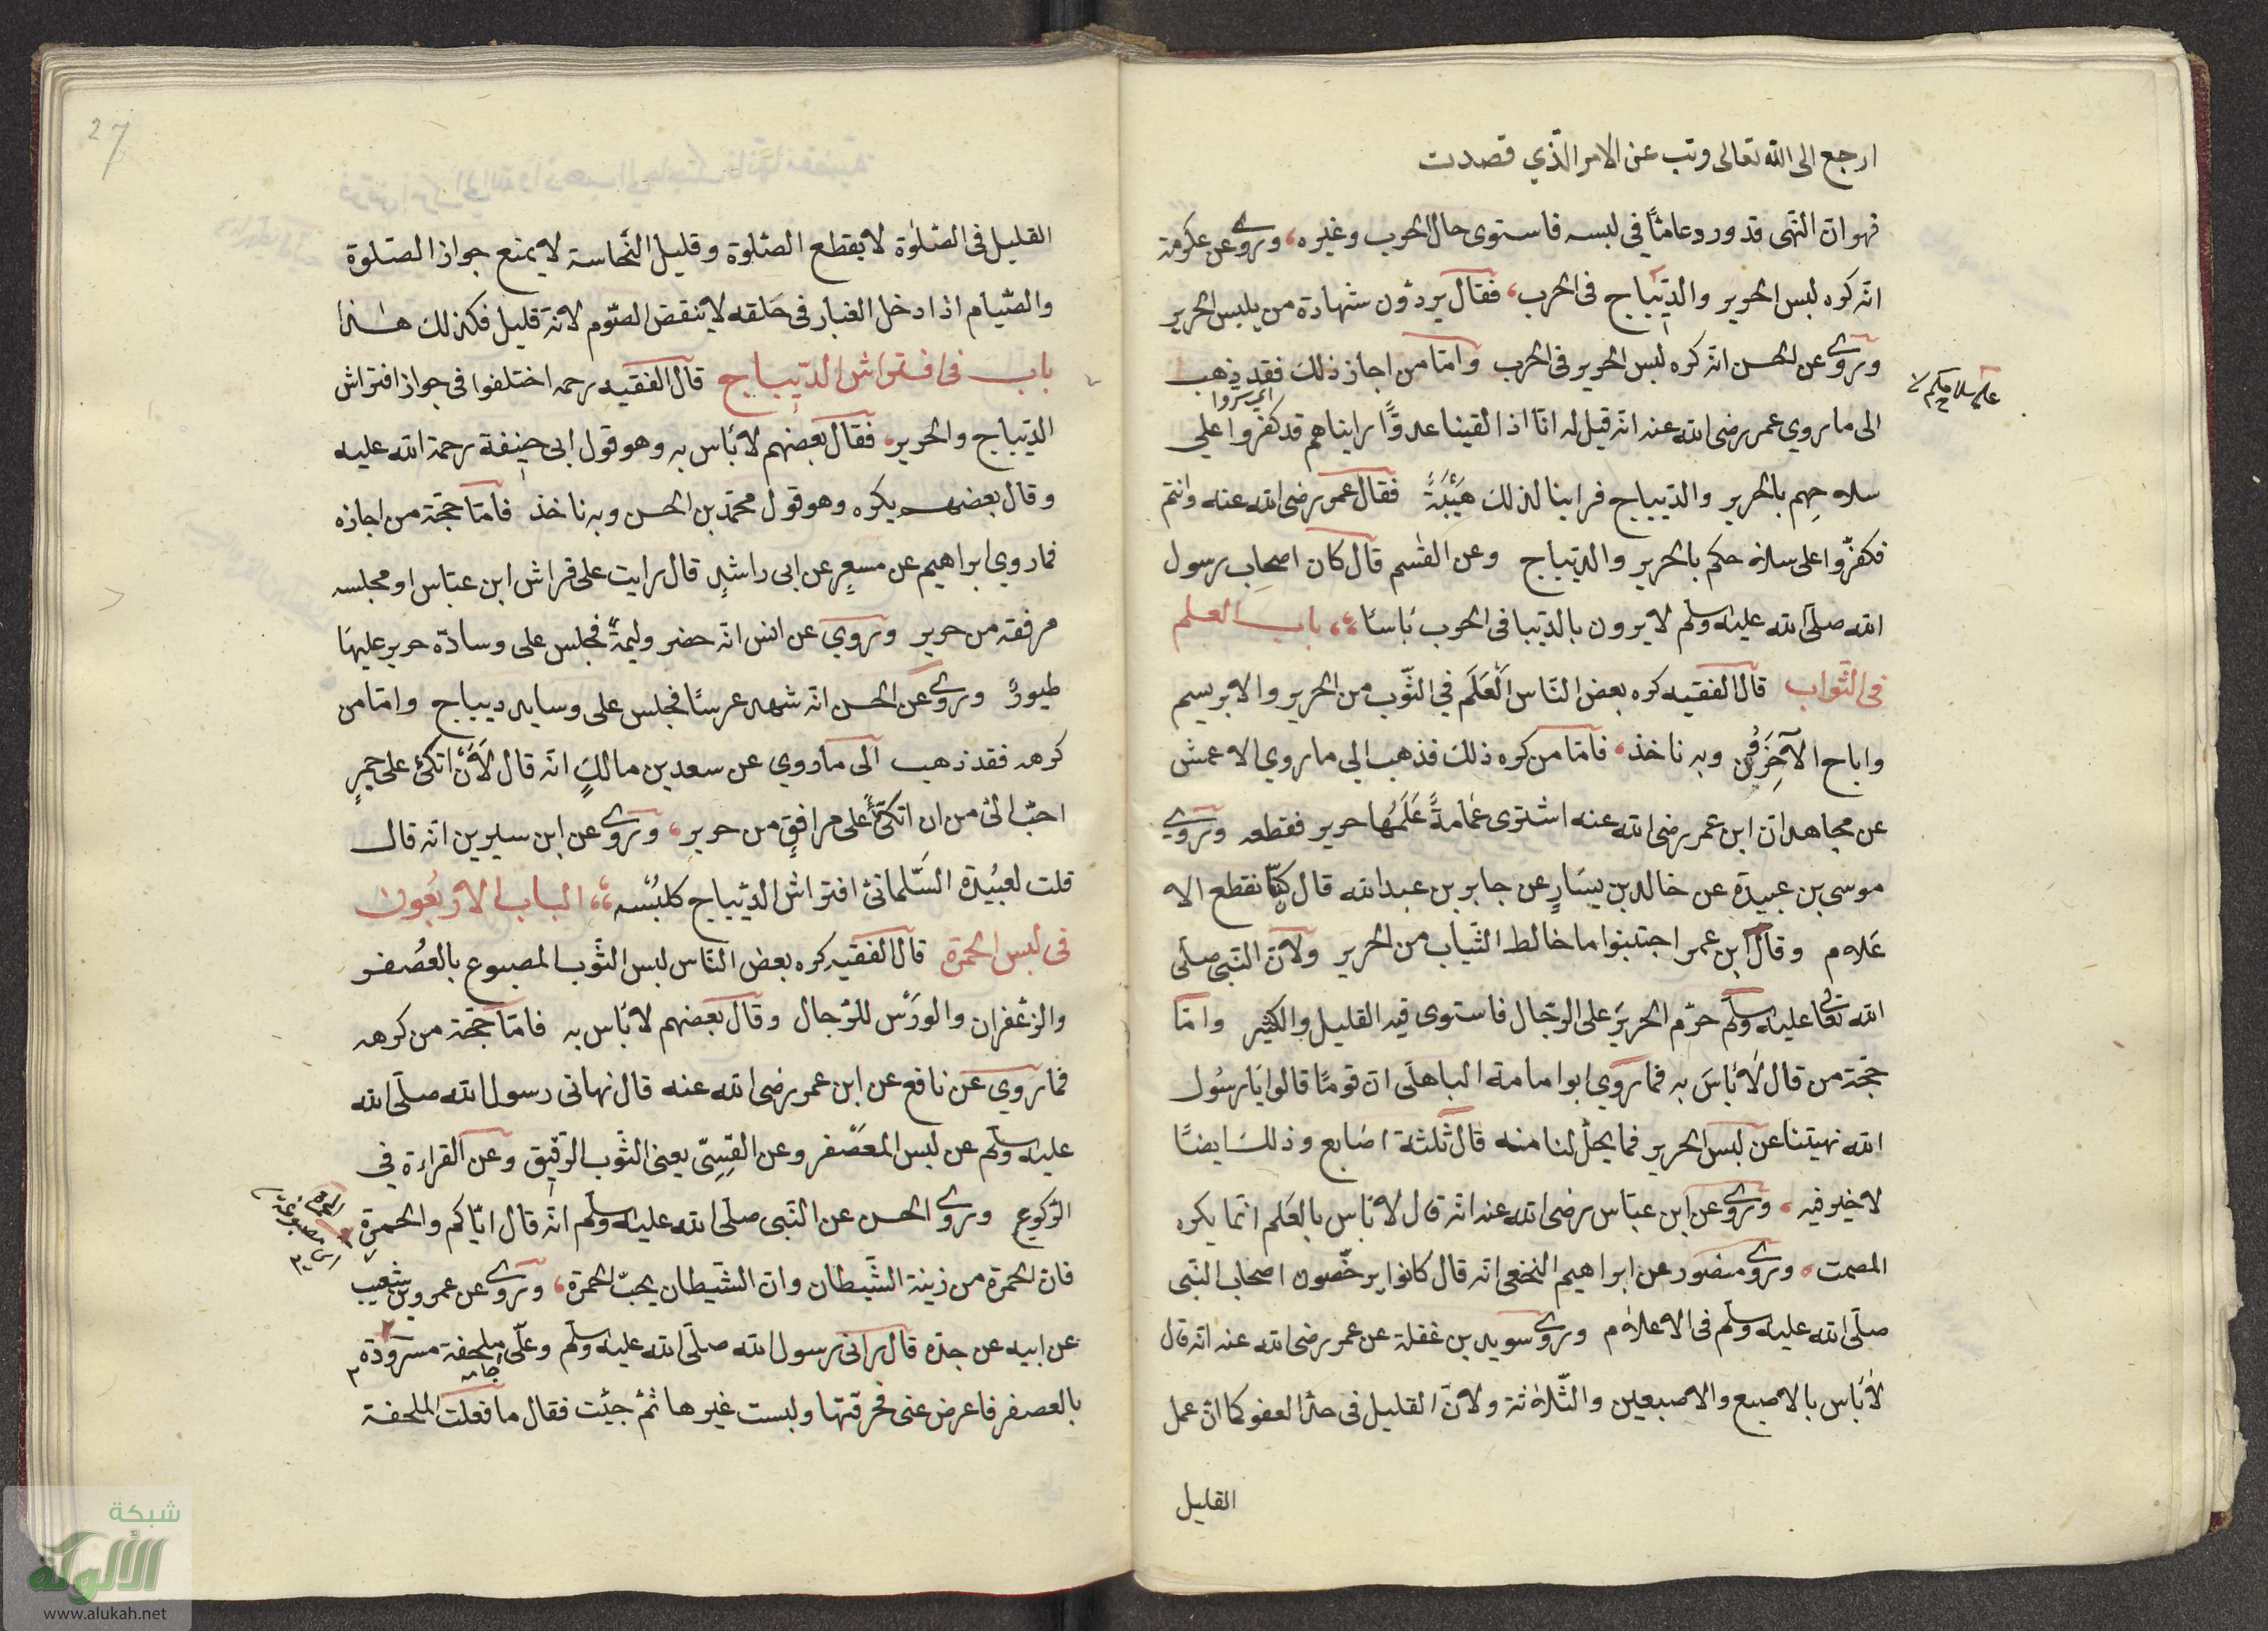 ارجع الى الله تعالى وتب عن الامر الذي قصدت
فهو ان النهى قد ورد عامًا في لبسه فاستوى حال الحرب وغيره، وروي عن عكرمة
انه كره لبس الحرير والديباج في الحرب، فقال يردون شهادة من يلبس الحرير
وروي عن الحسن انه كره لبس الحرير في الحرب وامّا من اجاز ذلك فقد ذهب
الى ما روي عمر رضى الله عنه انه قيل له انّا اذا لقينا عدوًّا رايناهم قد كفروا على
سلاحهم بالحرير والديباج فراينا لذلك هَيْبَةً فقال عمر رضى الله عنه وانتم
فكفّروا على سلاحكم بالحرير والديباج وعن القسم قال كان اصحاب رسول
الله صلى الله عليه وسلم لا يرون بالديبا في الحرب بَاسًا، باب العلم
في الثواب قال الفقيه كره بعض الناس العَلَم في الثّوب من الحرير والابريسم
واباح الآخرون وبه ناخذ، فامّا من كره ذلك فذهب الى ما روي الاعمش
عن مجاهد ان ابن عمر رضى الله عنه اشترى عمامةً عَلَمُها حرير فقطعه وروي
موسى بن عبيدة عن خالد بن يسَارٍ عن جابر بن عبد الله قال كنّا نقطع الا
علام وقال ابن عمر اجتنبوا ما خالط الثياب من الحرير ولانّ النبى صلى
الله تعالى عليه وسلم حرّم الحرير على الرّجال فاستوى فيه القليل والكثير وامّا
حجّة من قال لا بَاسَ به فما روي ابو امامة الباهلى ان قومًا قالوا يا رسُول
الله نهيتنا عن لبس الحرير فما يحلّ لنا منه قال ثلثة اصابع وذلك ايضًا
لا خير فيه، وروي عن ابن عبّاس رضى الله عنه انه قال لا بَاس بالعَلم انّما يكره
المصمت، وروي منصور عن ابراهيم النخعى انه قال كانوا يرخّصون اصحاب النبى
صلى الله عليه وسلم في الاعلام وروي سويد بن غفلة عن عمر رضى الله عنه انه قال
لا بَاس بالاصبع والاصبعين والثّلاثة ولانّ القليل في حدّ العفو كما ان عمل
القليل
على سلاحكم
27
القليل في الصّلوٰة لا يقطع الصّلوة وقليل النّجاسة لا يمنع جواز الصّلوة
والصّيام اذا دخل الغبار في حَلقه لا ينقض الصّوم لانه قليل فكذلك هٰذا
باب في افتراش الدّيباج قال الفقيه رحمه اختلفوا في جواز افتراش
الدّيباج والحرير، فقال بعضهم لا بَاس به وهو قول ابى حنيفة رحمة الله عليه
وقال بعضهم يكره وهو قول محمّد بن الحسن وبه ناخذ فامّا حجّة من اجازه
فما روي ابراهيم عن مسعرٍ عن ابى راشدٍ قال رايت على فراش ابن عبّاس او مجلسه
مرفقة من حرير وروي عن انس انه حضر وليمةً فجلس على وسادّة حرير عليها
طيورٌ وروي عن الحسن انه شهد عرسًا فجلس على وسايد ديباج وامّا من
كرهه فقد ذهب الى ما روي عن سعد بن مالكٍ انه قال لَاَنْ اتكئ على جمرٍ
احبّ الىّ من ان اتكئ على مرافقٍ من حرير، وروي عن ابن سيرين انه قال
قلت لعبُيدة السَّلمانىّ افتراش الدّيباج كلبْسه، الباب الاربَعون
في لبس الحمرة قال الفقيه كره بعض النّاس لبس الثّوب المصبوع بالعصُفر
والزعْفران والورَْس للرّجال وقال بعضهم لا بَاس به فامّا حجّة من كرهه
فما روي عن نافع عن ابن عمر رضى الله عنه قال نهانى رسول الله صلى الله
عليه وسلم عن لبس المعصَْفر وعن القسِىّ يعنى الثّوب الرّقيق وعن القراءة في
الرّكوع وروي الحسن عن النّبى صلى الله عليه وسلم انّه قال ايّاكم والحمرة
فانّ الحمرة من زينة الشّيطان وانّ الشّيطان يحبّ الحمرة، وروي عن عمرو بن شعيب
عن ابيه عن جدّه قال رانى رسول الله صلى الله عليه وسلم وعلّى ملحفة مسرودة
بالعصفر فاعرض عنى فحرقتها ولبست غيرها ثمّ جيئت فقال ما فعلت الملحفة
شبكة
الألوكة
www.alukah.net